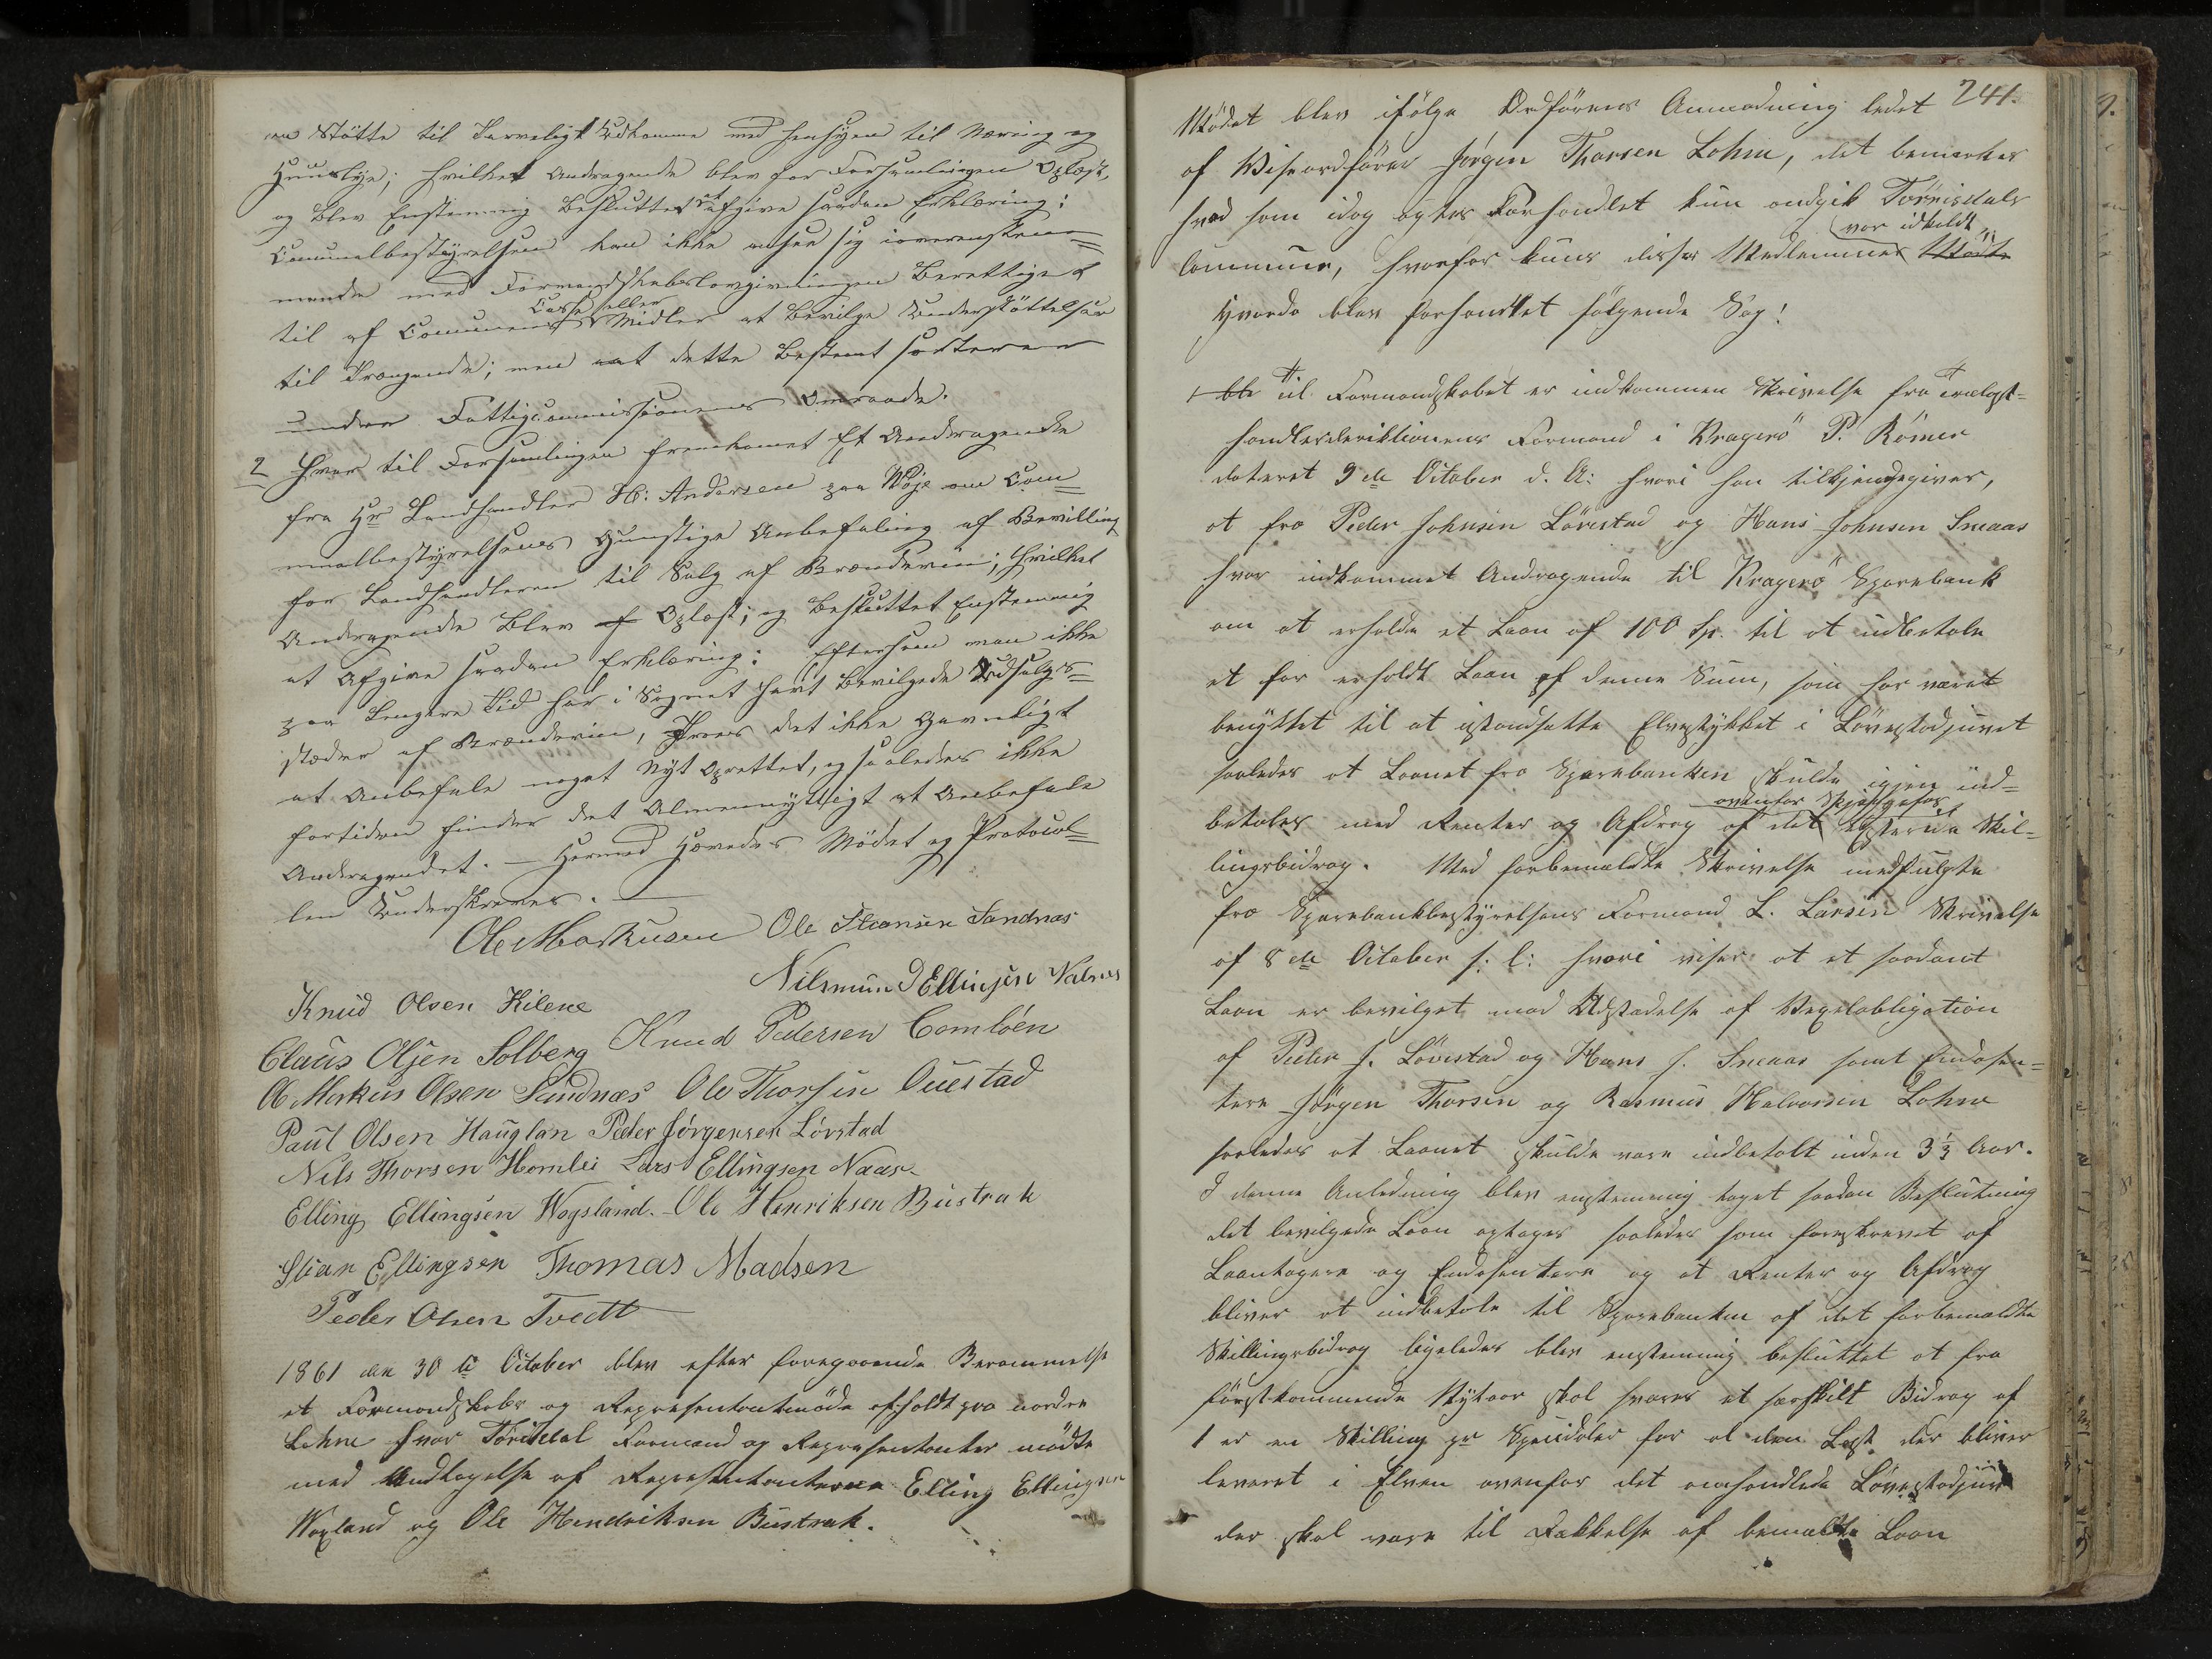 en Støtte til Tarveligt Udkomme med Hensyn til Næring og
Huuslye; hvilket Andragende blev for Forsamlingen Oplæst,
og blev Enstemmig Besluttet at afgive saadan Erklæring:
Communalbestyrelsen kan ikke ansee sig ioverenstem=
mende med Formandskabslovgivningen Berettiget
til af Communens Casse eller Midler at Bevilge Understøttelser
til Trængende; men at dette Bestemt sorterer
under Fattigcommissionens Omraade.
2 Hvor til Forsamlingen fremkomet Et Andragende
fra Hr Landhandler H: Andersen paa Woje om Com=
munalbestyrelsens Gunstige Anbefaling af Bevilling
for Landhandleren til Salg af Brændeviin; hvilket
Andragende Blev Oplæst; og Besluttet Enstemmig
at Afgive saadan Erklæring: Eftersom man ikke
paa Længere Tid har i Sognet havt Bevilgede Udsalgs=
stæder af Brændeviin, Troes det ikke Gavnligt
at Anbefale noget Nyt Oprettet, og saaledes ikke
fortiden finder det Almennyttigt at Anbefale
Andragendet. — Hermed Hævedes Mødet og Protocol=
len Underskreves. —
Ole Markusen Ole Stiansen Sandnæs
Nilsmund Ellinsen Nalnes
Knud Olsen Kilene
Claus Olsen Solberg Knud Pedersen Tomtöen
O Markus Olsen Sandnæs Ole Thorsen Ouestad
Paul Olsen Hauglan Peder Jörgensen Lövstad
Nils Thorsen Homlei Lars Ellingsen Naas
Elling Ellingsen Wogsland. Ole Henriksen Bustrak
Stian Ellingsen Thomas Madsen
Peder Olsen Tvedt
1861 den 30te October blev efter foregaaende Berammelse
et Formandskabs og Representantmöde afholdt paa nordre
Lohne hvor Töridal Formænd og Representanter mödte
med Undtagelse af Representanterne Elling Ellingsen
Wogland og Ole Hendriksen Bustrak.
241.
Mödet blev ifölge Ordförens Anmodning ledet
af Wiseordförer Jörgen Thorsen Lohne, det bemærkes
hvad som idag agtes Forhandlet kun angik Törrisdals
Commune, hvorfor kuns disses Medlemmer var idkaldt Mödte
Hvorda blev forhandlet følgende Sag!
1 ble Til Formandskabet er indkommen Skrivelse fra Trælast=
handlerdirektionens Formand i Kragerö P. Römer
dateret 9de October d. A: hvori han tilkjendegiver,
at fra Peder Johnsen Lövestad og Hans Johnsen Sneaas
hvor indkommet Andragende til Kragerö Sparebank
om at erholde et Laan af 100 Sp. til at udbetale
et før erholdt Laan af denne Sum, som har været
benyttet til at istandsætte Elvestykket i Lövestadjuvet
saaledes at Laanet fra Sparebanken skulde igjen ind=
betales med Renter og Afdrag af det ovenfor Skjægefos Skil=
lingsbidrag. Med forbemældte Skrivelse medfulgte
fra Sparebankbestyrelsens Formand L. Larsen Skrivelse
af 8de October s: l: hvori viser at et saadant
Laan er bevilget mod Udstædelse af Vexelobligation
af Peder J. Lövestad og Hans J. Sneaas samt Endosen=
tere Jörgen Thorsen og Rasmus Halvorsen Lohne
saaledes at Laanet skulde være indbetalt inden 3 1/3 Aar.
I denne Anledning blev enstemmig taget saadan Beslutning
det bevilgede Laan optages saaledes som foreskrevet af
Laantagere og Endosentere og at Renter og Afdrag
bliver at indbetale til Sparebanken af det forbemældte
Skillingsbidrag ligeledes blev enstemmig besluttet at fra
förstkommende Nytaar skal svares et særskilt Bidrag af
1 er en Skilling pr Speciedaler for al den Last der bliver
leveret i Elven ovenfor det omhandlede Lövestadjuv
der skal være til Dækkelse af bemældte Laan